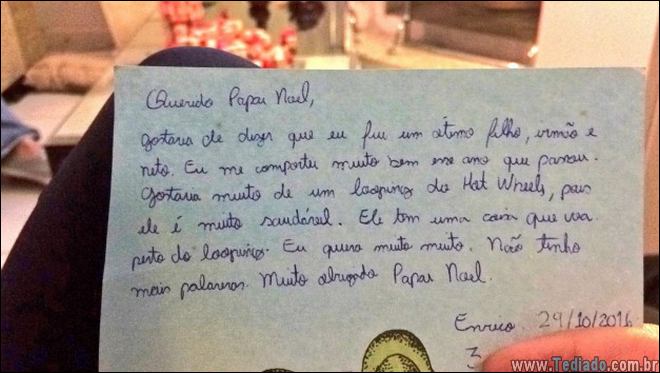 Querido Papai Noel,
gostaria de dizer que eu fui um ótimo filho, irmão e
neto. Eu me comportei muito bem esse ano que passou.
Gostaria muito de um looping do Hot Wheels, pois
ele é muito saudável. Ele tem uma coisa que voa
perto do looping. Eu quero muito muito. Não tenho
mais palavras. Muito obrigado Papai Noel.
Enrico 29/10/2016
3
www.Tediado.com.br